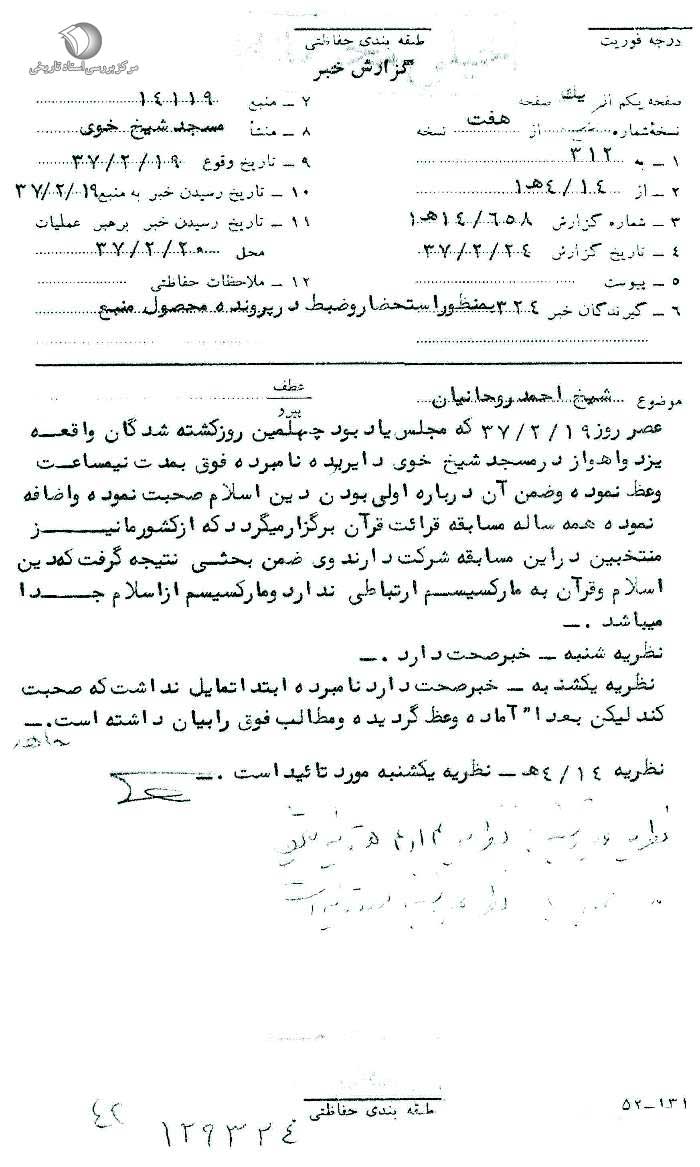 مرکز بررسی اسناد تاریخی
درجه فوریت
طبقه بندی حفاظتی
گزارش خبر
صفحه یکم از یک صفحه
نسخهٔ شماره از هفت نسخه
۱ ـ به ۳۱۲
۲ ـ از ۴/۱۴هـ۱
۳ ـ شماره گزارش ۱۴/۶۵۸هـ۱
۴ ـ تاریخ گزارش ۳۷/۲/۲۴
۵ ـ پیوست
۶ ـ گیرندگان خبر ۳۲۴ بمنظوراستحضاروضبط درپرونده محصول منبع
۷ ـ منبع ۱۴۱۱۹
۸ ـ منشأ مسجد شیخ خوی
۹ ـ تاریخ وقوع ۳۷/۲/۱۹
۱۰ ـ تاریخ رسیدن خبر به منبع ۳۷/۲/۱۹
۱۱ ـ تاریخ رسیدن خبر برهبر عملیات
محل ۳۷/۲/۲۰
۱۲ ـ ملاحظات حفاظتی
موضوع شیخ احمد روحانیان
عطف
پیرو
عصر روز ۳۷/۲/۱۹ که مجلس یاد بود چهلمین روزکشته شدگان واقعه
یزد واهواز درمسجد شیخ خوی دایربده نامبرده فوق بمدت نیمساعت
وعظ نموده وضمن آن درباره اولی بودن دین اسلام صحبت نموده واضافه
نموده همه ساله مسابقه قرائت قرآن برگزارمیگردد که ازکشورمانیز
منتخبین دراین مسابقه شرکت دارند وی ضمن بحثی نتیجه گرفت که دین
اسلام وقرآن به مارکسیسم ارتباطی ندارد ومارکسیسم ازاسلام جدا
میباشد .ـ
نظریه شنبه ـ خبرصحت دارد .ـ
نظریه یکشنبه ـ خبرصحت دارد نامبرده ابتدا تمایل نداشت که صحبت
کند لیکن بعدا" آماده وعظ گردیده ومطالب فوق رابیان داشته است .ـ
نظریه ۴/۱۴هـ ـ نظریه یکشنبه مورد تائید است .ـ
طبقه بندی حفاظتی
۵۲ـ۱۳۱
۴۲
۱۲۹۳۲۴